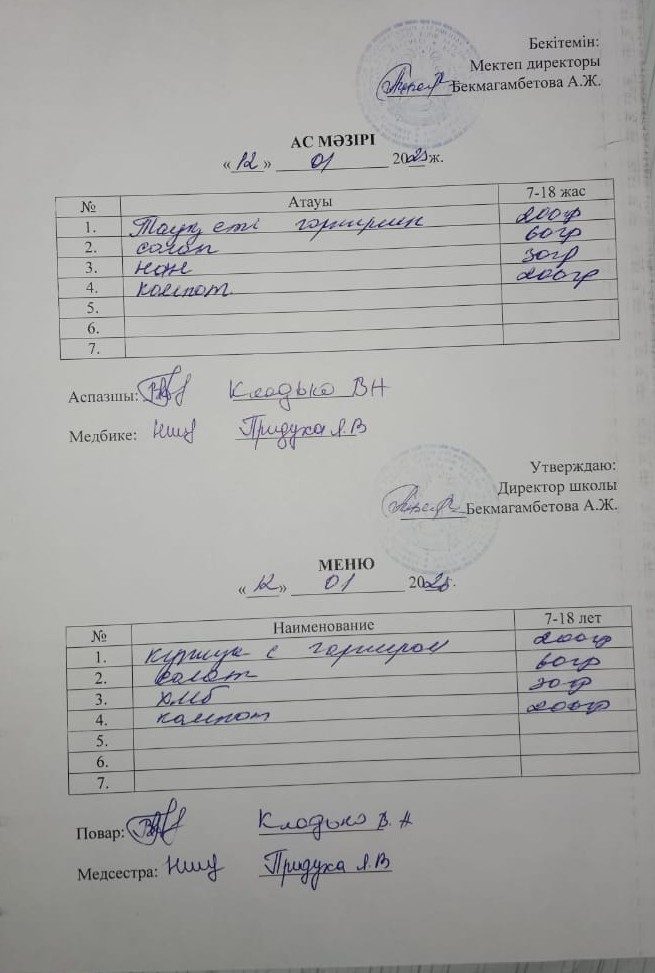 Бекітемін:
Мектеп директоры
Бекмагамбетова А.Ж.
АС МӘЗІРІ
« 12 » 01 2025 ж.
№ Атауы 7-18 жас
1. Тауық еті гарнирмен 200гр
2. салат 60гр
3. нан 30гр
4. компот 200гр
5.
6.
7.
Аспазшы: Кладько В Н
Медбике: Придуха Л.В
Утверждаю:
Директор школы
Бекмагамбетова А.Ж.
МЕНЮ
« 12 » 01 2025.
№ Наименование 7-18 лет
1. с гарниром 200гр
2. салат 60гр
3. хлеб 30гр
4. компот 200гр
5.
6.
7.
Повар: Кладько В. Н
Медсестра: Придуха Л.В